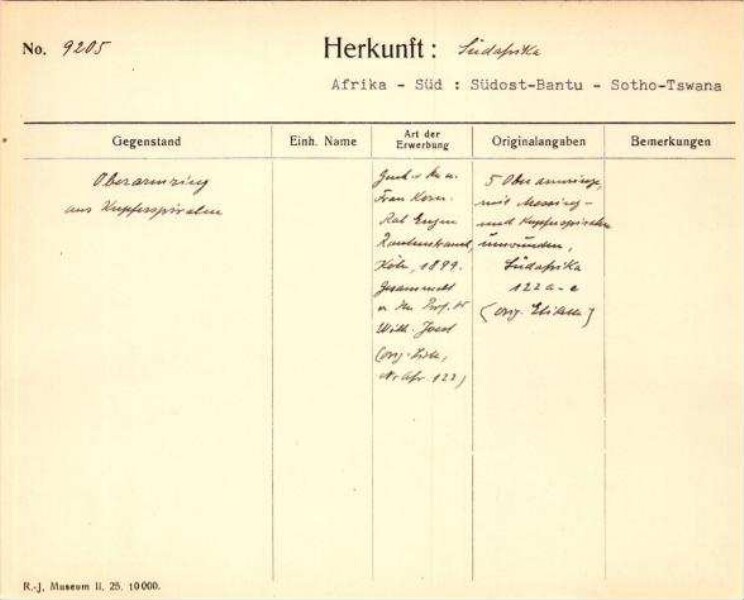 No. 9205
Herkunft: Südafrika
Afrika - Süd : Südost-Bantu - Sotho-Tswana
Gegenstand
Einh. Name
Art der Erwerbung
Originalangaben
Bemerkungen
Oberarmring
aus Kupferspiralen
Gesch. v. Hn u.
Frau Kom.
Rat Eugen
Rautenstrauch,
Köln, 1899.
Gesammelt
v. Hn Prof. Dr
Wilh. Joest
(orig. Liste,
Nr Afr. 122)
5 Oberarmringe,
mit Messing-
und Kupferspiralen
umwunden,
Südafrika
122 a-e
(orig. Etikett)
R.-J. Museum II. 25. 10000.